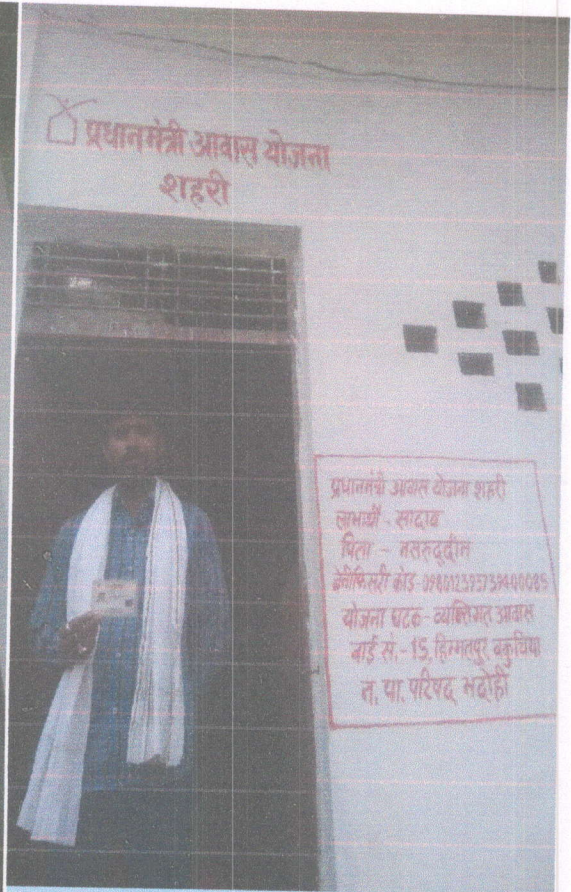 प्रधानमंत्री आवास योजना
शहरी
प्रधानमंत्री आवास योजना शहरी
लाभार्थी - सादाव
पिता - नसरुद्दीन
बेनीफिसरी कोड
योजना घटक - व्यक्तिगत आवास
वार्ड सं. - 15, हिम्मतपुर बकुचिया
न. पा. परिषद भदोही